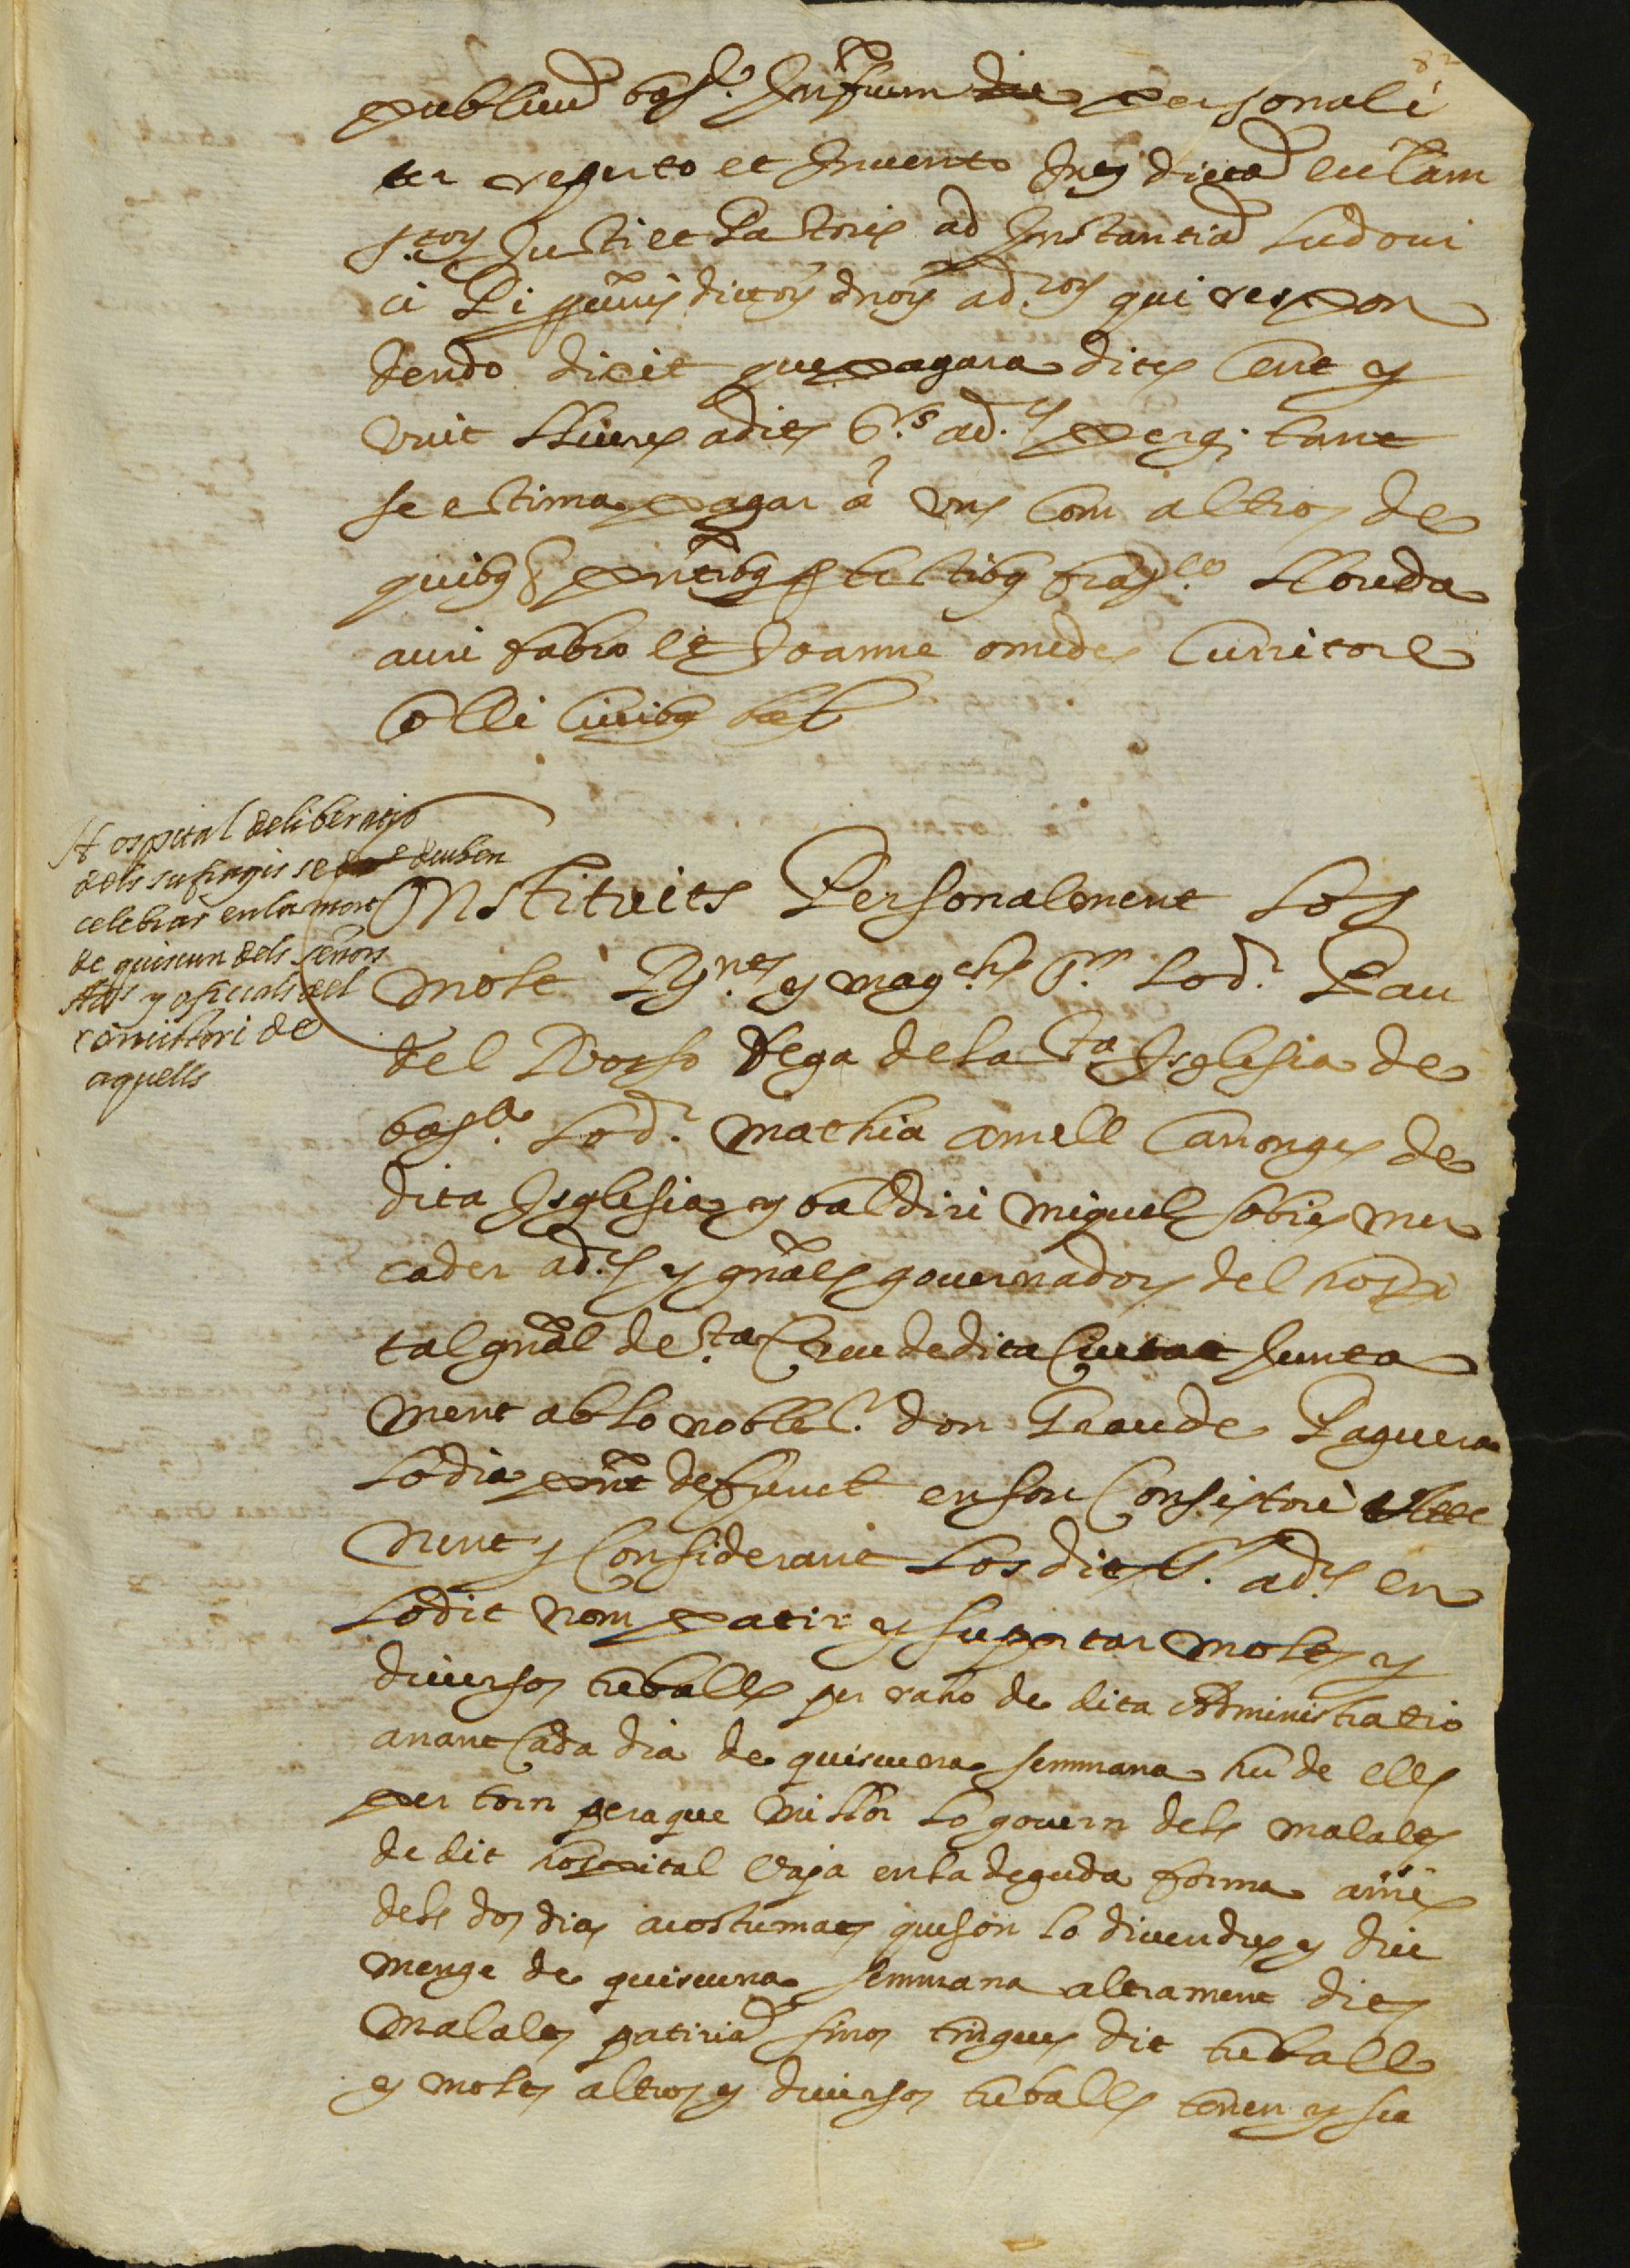 82
publicus bar. infrum personali
ter reperto et invento in ecclesiam
stor Justi et Pastoris ad instantia Ludovi
ci Pi dictor dnor ador qui respon
dendo dicit que pagara dites Cent y
vuit lliures a dits Srs adrs perq tant
se estima pagar á uns Com altros de
quibq pntibq testibq Lloreda
auri fabro et Joanne omedes Curritore
Colli Civibq bar
Hospital deliberatio
dels sufragis se deuben
celebrar en la mort
de quiscun dels señors
Adrs y oficials del
consistori de
aquells
Constituits Personalment Los
molt Rnts y magchs Srs Lo dr Pau
del Rosso dega de la Sta Isglesia de
bara Lo dr Mathia Amell Canonges de
dita Isglesia y baldiri Miquel sobies mer
cader adrs y gñals governadors del hospi
tal gñal de Sta Creu de dita Ciutat Junta
ment ab lo noble Sr don Grau de Paguera
Lo dia pñt defunct en son Consistori
Nent y Considerant Los dits Srs adrs en
Lo dit nom patir y suportar molts y
diversos treballs per raho de dita Administratio
anant Cada dia de quiscuna semmana hu de ells
per torn peraque millor lo govern dels malalts
de dit hospital vaja en la deguda forma ames
dels dos dias acostumats que son lo divendres y diu
menge de quiscuna semmana altrament dits
Malalts patirian sinos tingues dit treball
y molts altros y diversos treballs tenen y su